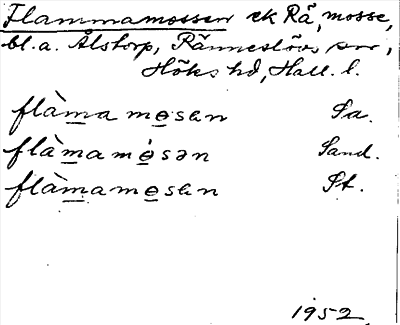 Flammamossen ek Rä, mosse,
bl.a. Ålstorp, Ränneslövs sn,
Höks hd, Hall. l.
flàmamosen Sa.
flàmamósən Sand.
flàmamosen St.
1952